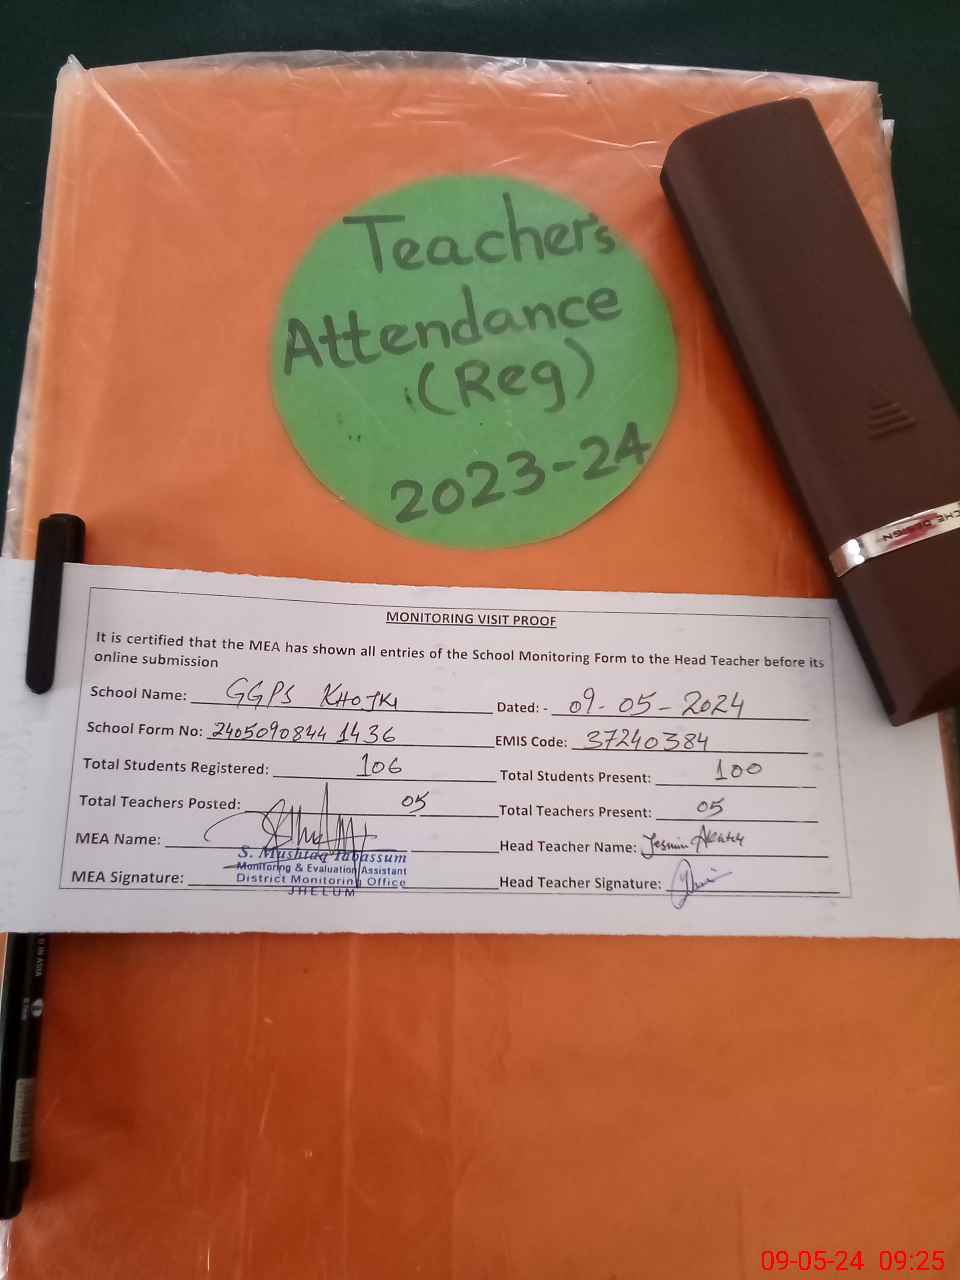 Teachers
Attendance
(Reg)
2023-24
MONITORING VISIT PROOF
It is certified that the MEA has shown all entries of the School Monitoring Form to the Head Teacher before its
online submission
School Name: GGPS KHOJKI Dated: - 09-05-2024
School Form No: 2405090844 1436 EMIS Code: 37240384
Total Students Registered: 106 Total Students Present: 100
Total Teachers Posted: 05 Total Teachers Present: 05
MEA Name: Head Teacher Name:
S. Mushtaq Tabassum
Monitoring & Evaluation Assistant
MEA Signature: District Monitoring Office Head Teacher Signature:
JHELUM
09-05-24 09:25